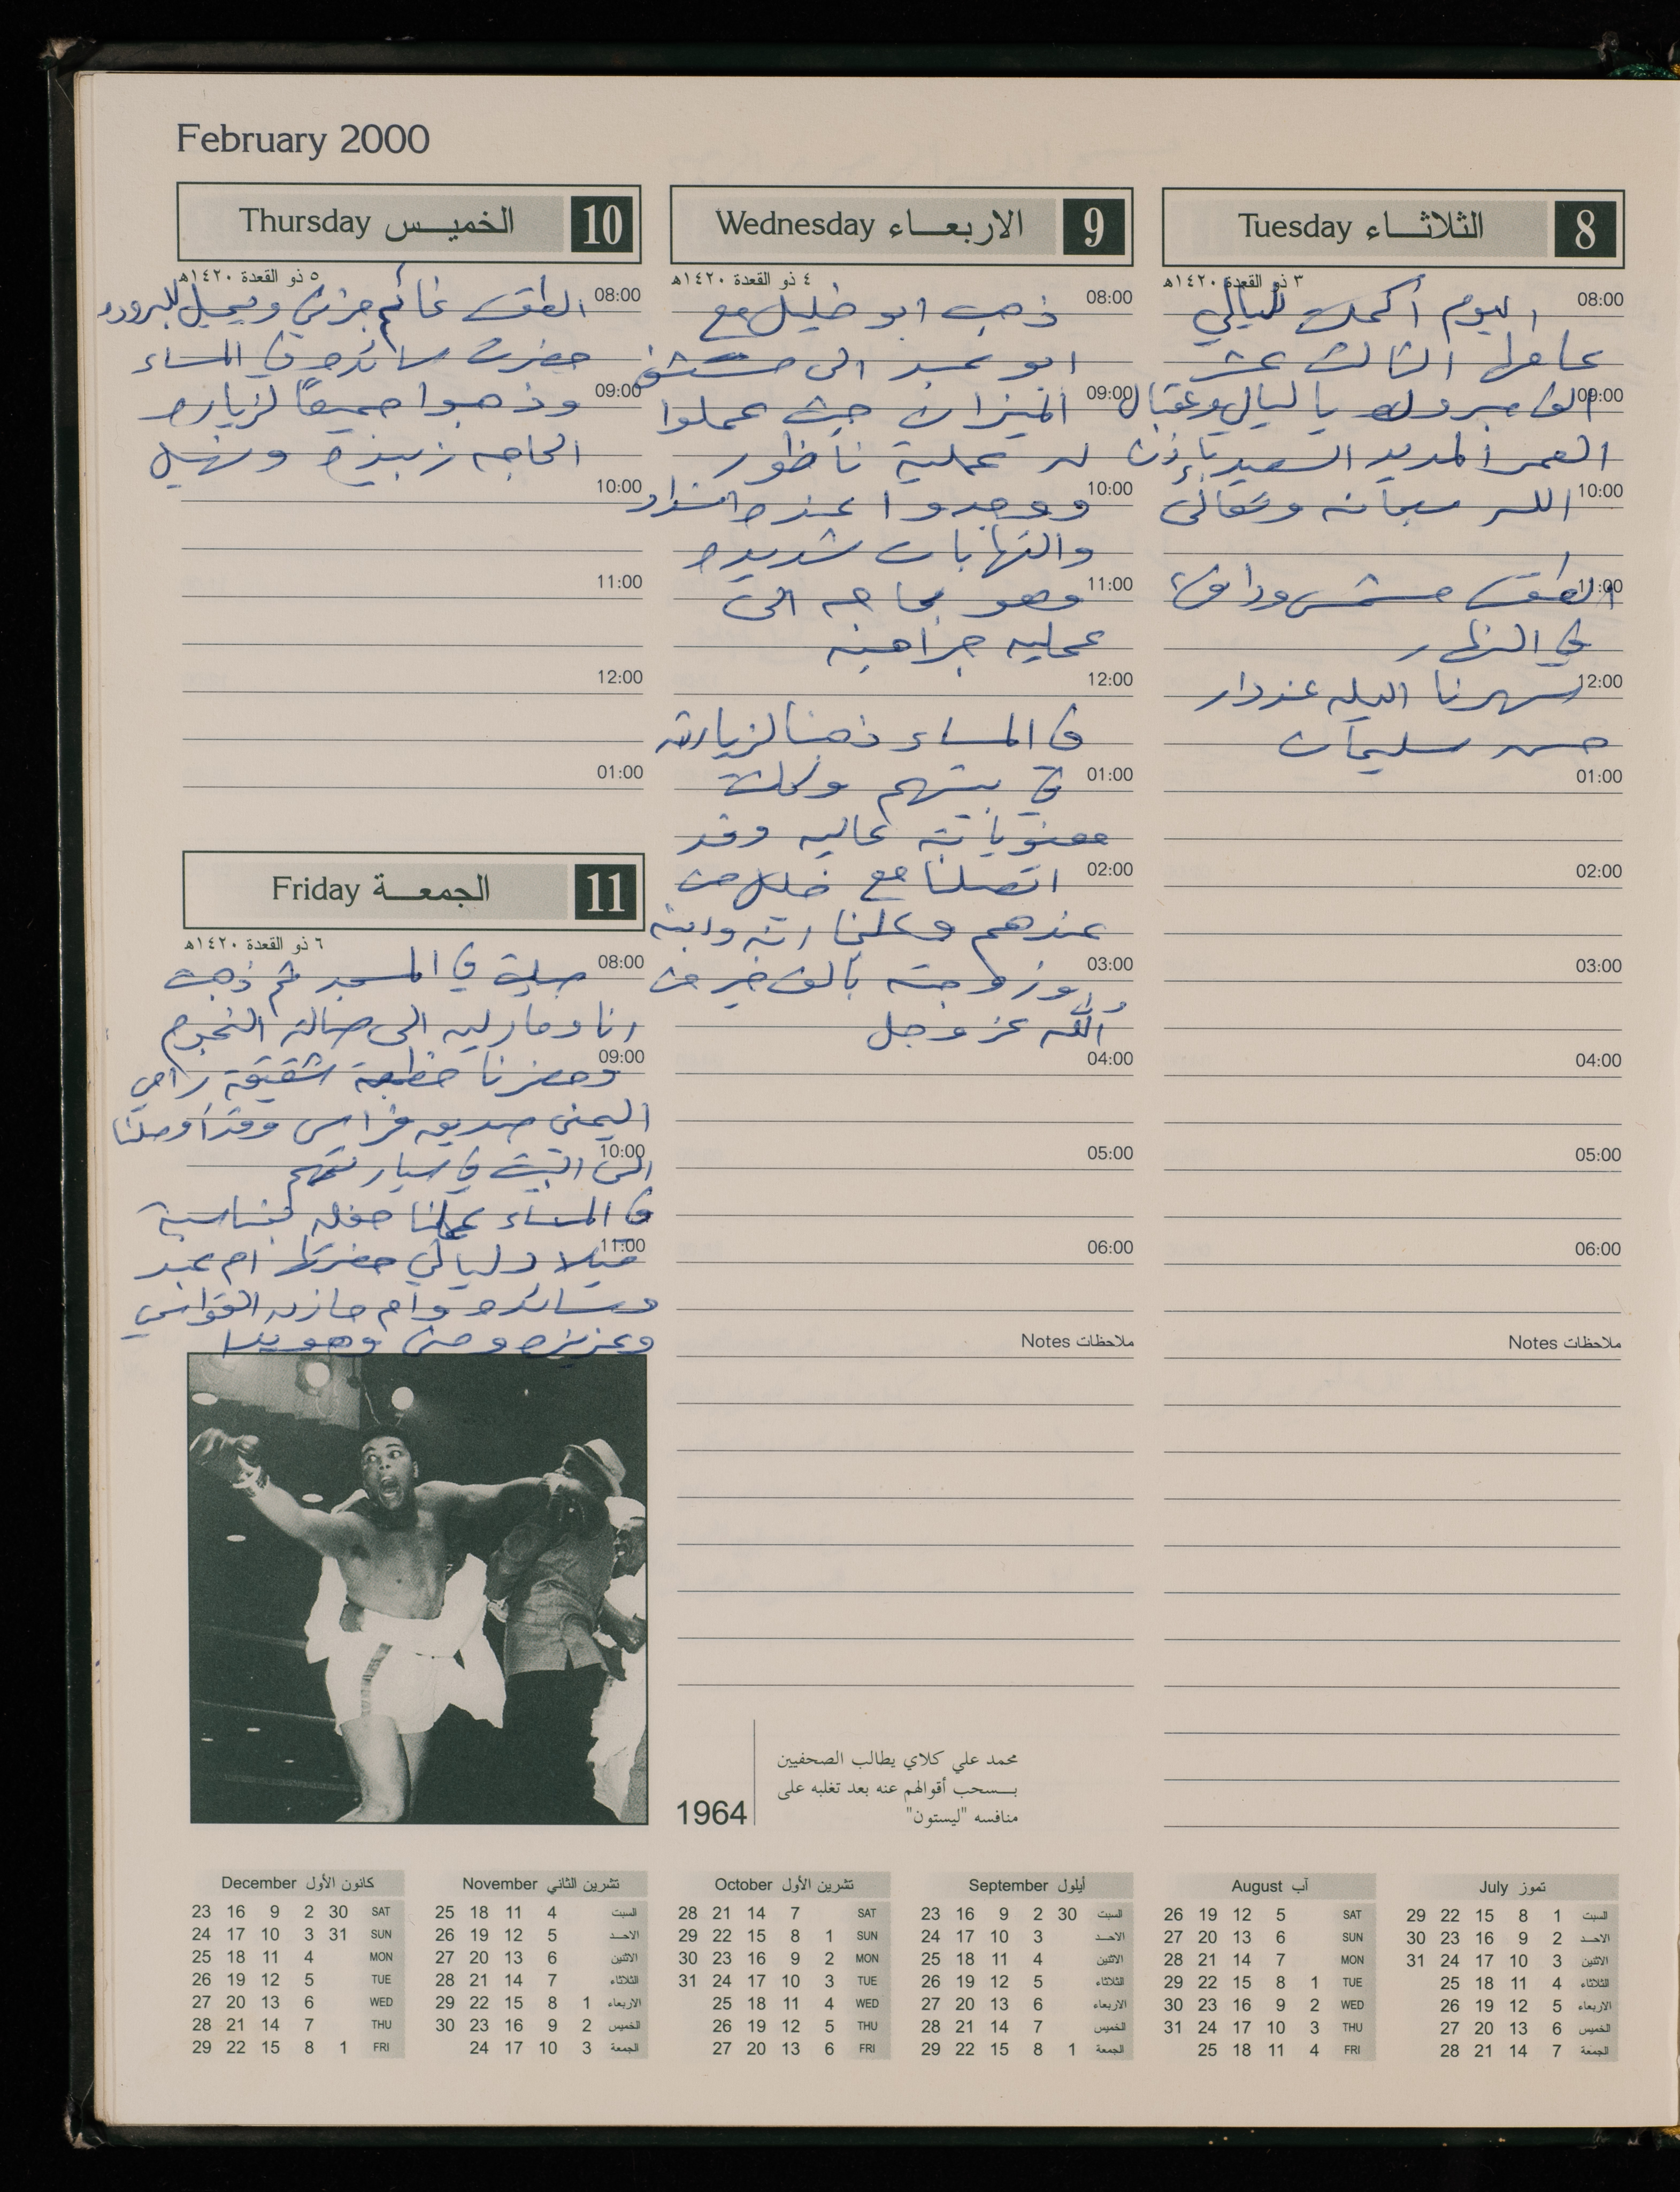 February 2000
8 الثلاثاء Tuesday
٣ ذو القعدة ١٤٢٠هـ
08:00
اليوم أكملت ليالي
عامها الثالث عشر
09:00
الف مبروك يا ليالي وعقبال
العمر المديد السعيد بإذن
10:00
الله سبحانه وتعالى
11:00
الطقس مشمس ودافئ
في النهار
12:00
سهرنا اليله عند دار
حسن سليمان
01:00
02:00
03:00
04:00
05:00
06:00
ملاحظات Notes
9 الاربعاء Wednesday
٤ ذو القعدة ١٤٢٠هـ
08:00
ذهب ابو خليل مع
ابو عبد الى مستشفى
09:00
الميزان حيث عملوا
له عملية ناظور
10:00
ووجدوا عنده انسداد
والتهابات شديده
11:00
وهو بحاجه الى
عمليه جراحيه
12:00
في المساء ذهبنا لزيارته
01:00
في بيتهم وكانت
معنوياته عاليه وقد
02:00
اتصلنا مع خليل من
عندهم وعلمنا انه وابنه
03:00
وزوجته بألف خير من
الله عز وجل
04:00
05:00
06:00
ملاحظات Notes
10 الخميس Thursday
٥ ذو القعدة ١٤٢٠هـ
08:00
الطقس غائم جزئي ويميل للبروده
حضرت سائده في المساء
09:00
وذهبوا جميعاً لزيارة
الحاجه زبيده ونهيل
10:00
11:00
12:00
01:00
11 الجمعة Friday
٦ ذو القعدة ١٤٢٠هـ
08:00
صليت في المسجد ثم ذهبت
انا ومارليه الى صالة النجوم
09:00
وحضرنا خطبة شقيقة رامي
اليمني صديق فراس وقد أوصلنا
10:00
الى البيت في سيارتهم
في المساء عملنا حفله بمناسبة
11:00
ميلاد ليالي حضرتها ام عبد
وسائده وام مازن القواسمي
وعزيزه ومنى وهويدا
1964
محمد علي كلاي يطالب الصحفيين
بسحب أقوالهم عنه بعد تغلبه على
منافسه "ليستون"
تموز July
السبت 1 8 15 22 29
الاحد 2 9 16 23 30
الاثنين 3 10 17 24 31
الثلاثاء 4 11 18 25
الاربعاء 5 12 19 26
الخميس 6 13 20 27
الجمعة 7 14 21 28
آب August
SAT 5 12 19 26
SUN 6 13 20 27
MON 7 14 21 28
TUE 1 8 15 22 29
WED 2 9 16 23 30
THU 3 10 17 24 31
FRI 4 11 18 25
أيلول September
السبت 30 2 9 16 23
الاحد 3 10 17 24
الاثنين 4 11 18 25
الثلاثاء 5 12 19 26
الاربعاء 6 13 20 27
الخميس 7 14 21 28
الجمعة 1 8 15 22 29
تشرين الأول October
SAT 7 14 21 28
SUN 1 8 15 22 29
MON 2 9 16 23 30
TUE 3 10 17 24 31
WED 4 11 18 25
THU 5 12 19 26
FRI 6 13 20 27
تشرين الثاني November
السبت 4 11 18 25
الاحد 5 12 19 26
الاثنين 6 13 20 27
الثلاثاء 7 14 21 28
الاربعاء 1 8 15 22 29
الخميس 2 9 16 23 30
الجمعة 3 10 17 24
كانون الأول December
SAT 30 2 9 16 23
SUN 31 3 10 17 24
MON 4 11 18 25
TUE 5 12 19 26
WED 6 13 20 27
THU 7 14 21 28
FRI 1 8 15 22 29